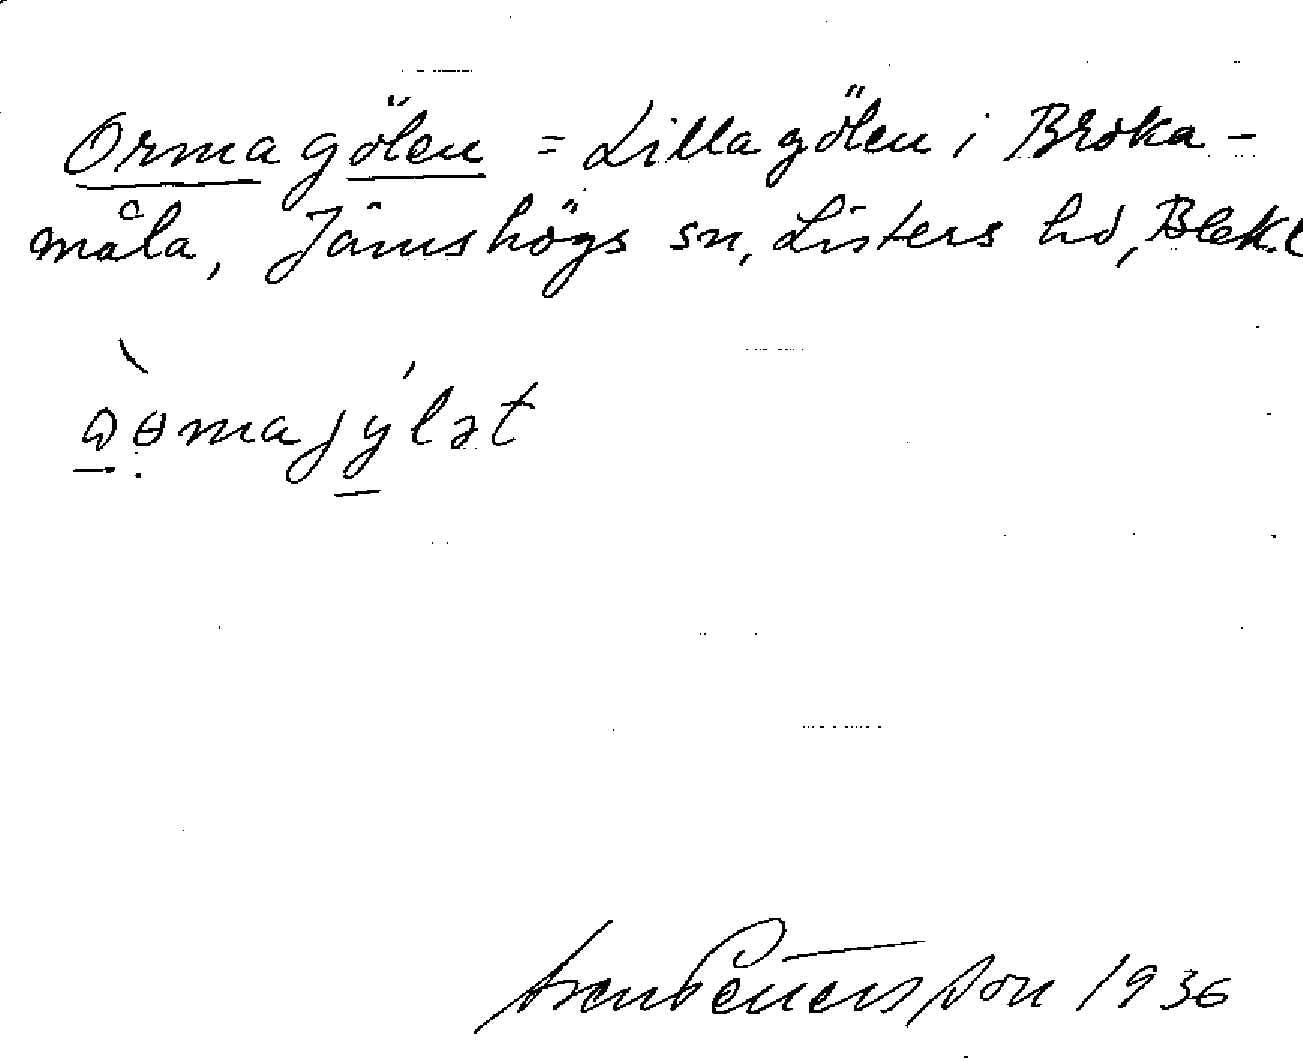 Ormagölen = Lillagölen i Broka-
måla, Jämshögs sn, Listers hd, Blek.
Pettersson 1936